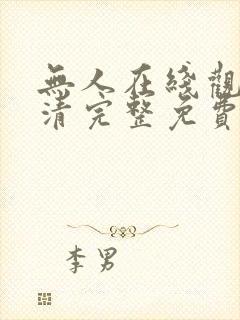 無人在綫觀
清完整免費
李男